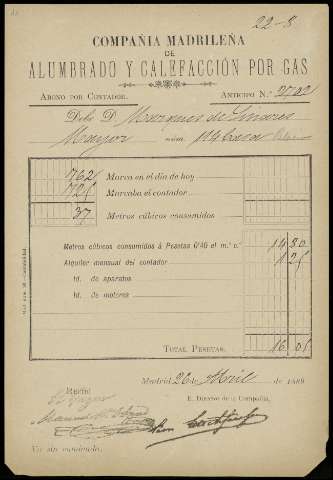 22-8
COMPAÑIA MADRILEÑA
DE
ALUMBRADO Y CALEFACCIÓN POR GAS
ABONO POR CONTADOR. ANTICIPO N.º
Debe D. Marques de Linares
Mayor núm. 114 Casa
762 Marca en el día de hoy
725 Marcaba el contador
37 Metros cúbicos consumidos
Metros cúbicos consumidos á Pesetas 0'40 el m.º c.º 14 80
Alquiler mensual del contador 1 25
Id. de aparatos
Id. de motores
TOTAL PESETAS. 16 05
Madrid 26 de Abril de 1889
Recibí
El Director de la Compañía,